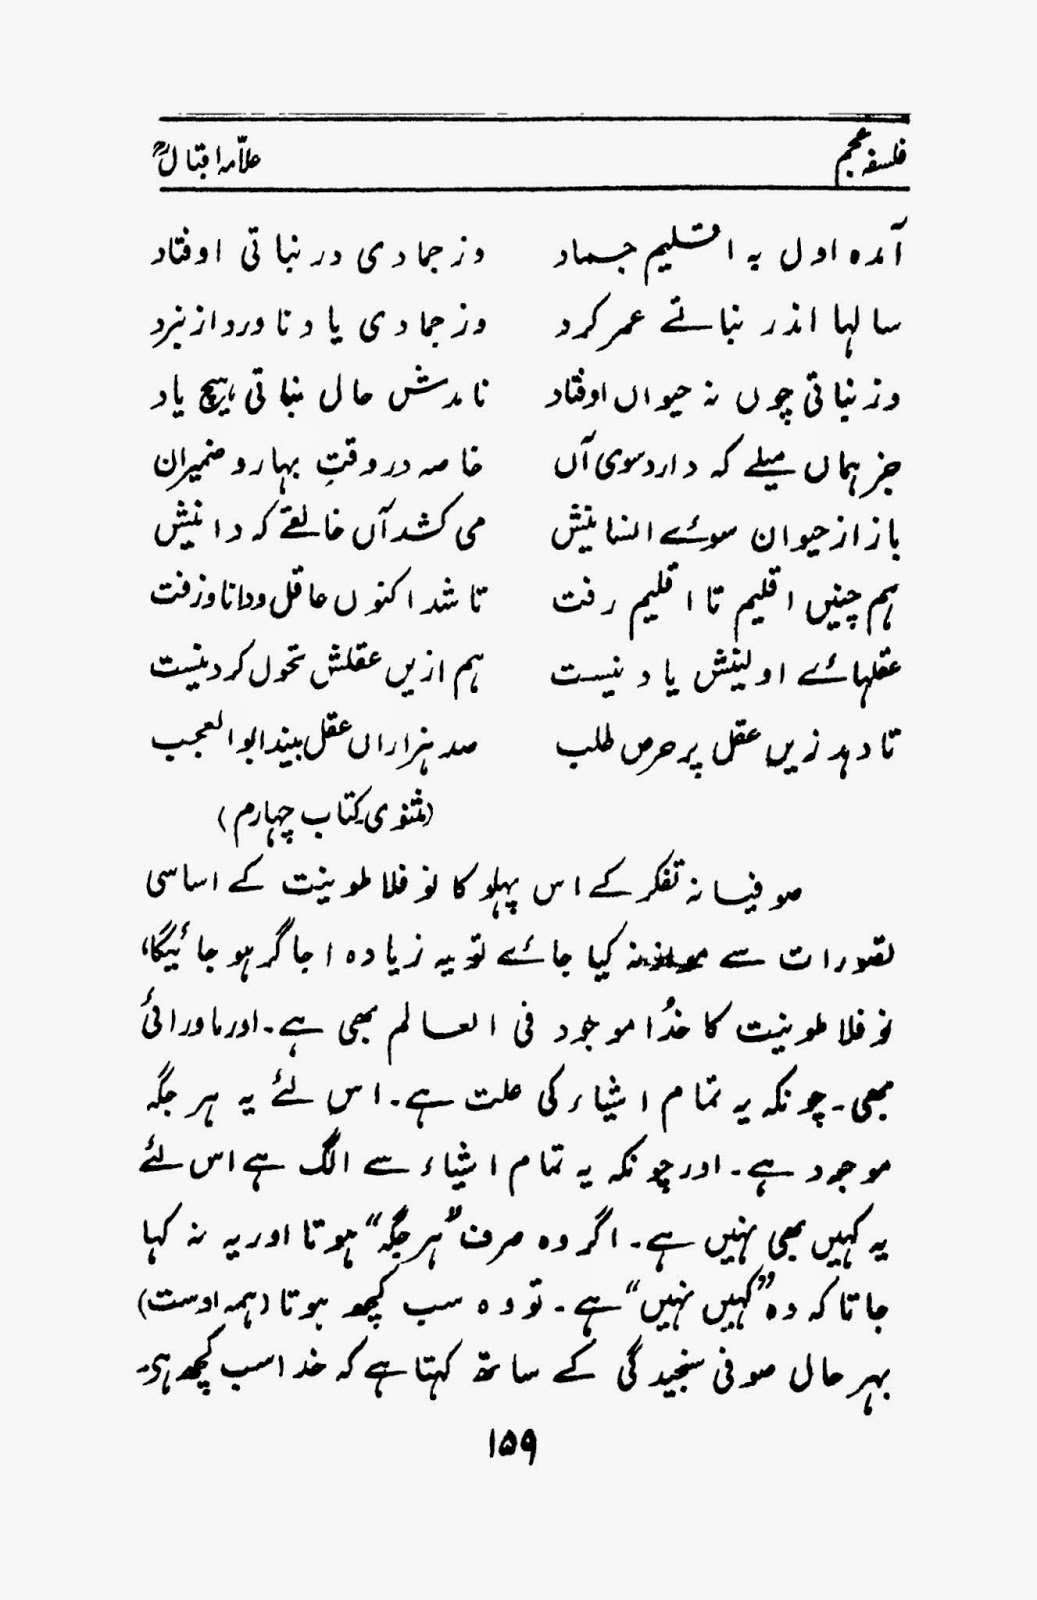 فلسفہ عجم علامہ اقبالؒ
آمدہ اول بہ اقلیم جماد وز جمادی در نباتی اوفتاد
سالہا اندر نباتے عمر کرد وز جمادی یاد ناورد از نبرد
وز نباتی چوں نہ حیواں اوفتاد نامدش حال نباتی ہیچ یاد
جز ہماں میلے کہ دارد سوی آں خاصہ در وقتِ بہار و ضمیران
باز از حیوان سوئے انسانیش می کشد آں خالقے کہ دانیش
ہم چنیں اقلیم تا اقلیم رفت تا شد اکنوں عاقل و دانا و زفت
عقلہائے اولینش یاد نیست ہم ازیں عقلش تحول کردنیست
تا دہد زیں عقل پر حرص طلب صد ہزاراں عقل بیند ابوالعجب
(مثنوی کتاب چہارم)
صوفیانہ تفکر کے اس پہلو کا نو فلاطونیت کے اساسی
تصورات سے موازنہ کیا جائے تو یہ زیادہ اجاگر ہو جائیگا،
نو فلاطونیت کا خدُا موجود فی العالم بھی ہے۔ اور ماورائی
بھی۔ چونکہ یہ تمام اشیاء کی علت ہے۔ اس لئے یہ ہر جگہ
موجود ہے۔ اور چونکہ یہ تمام اشیاء سے الگ ہے اس لئے
یہ کہیں بھی نہیں ہے۔ اگر وہ صرف "ہر جگہ" ہوتا اور یہ نہ کہا
جاتا کہ وہ "کہیں نہیں" ہے۔ تو وہ سب کچھ ہوتا (ہمہ اوست)
بہر حال صوفی سنجیدگی کے ساتھ کہتا ہے کہ خدا سب کچھ ہے۔
۱۵۹